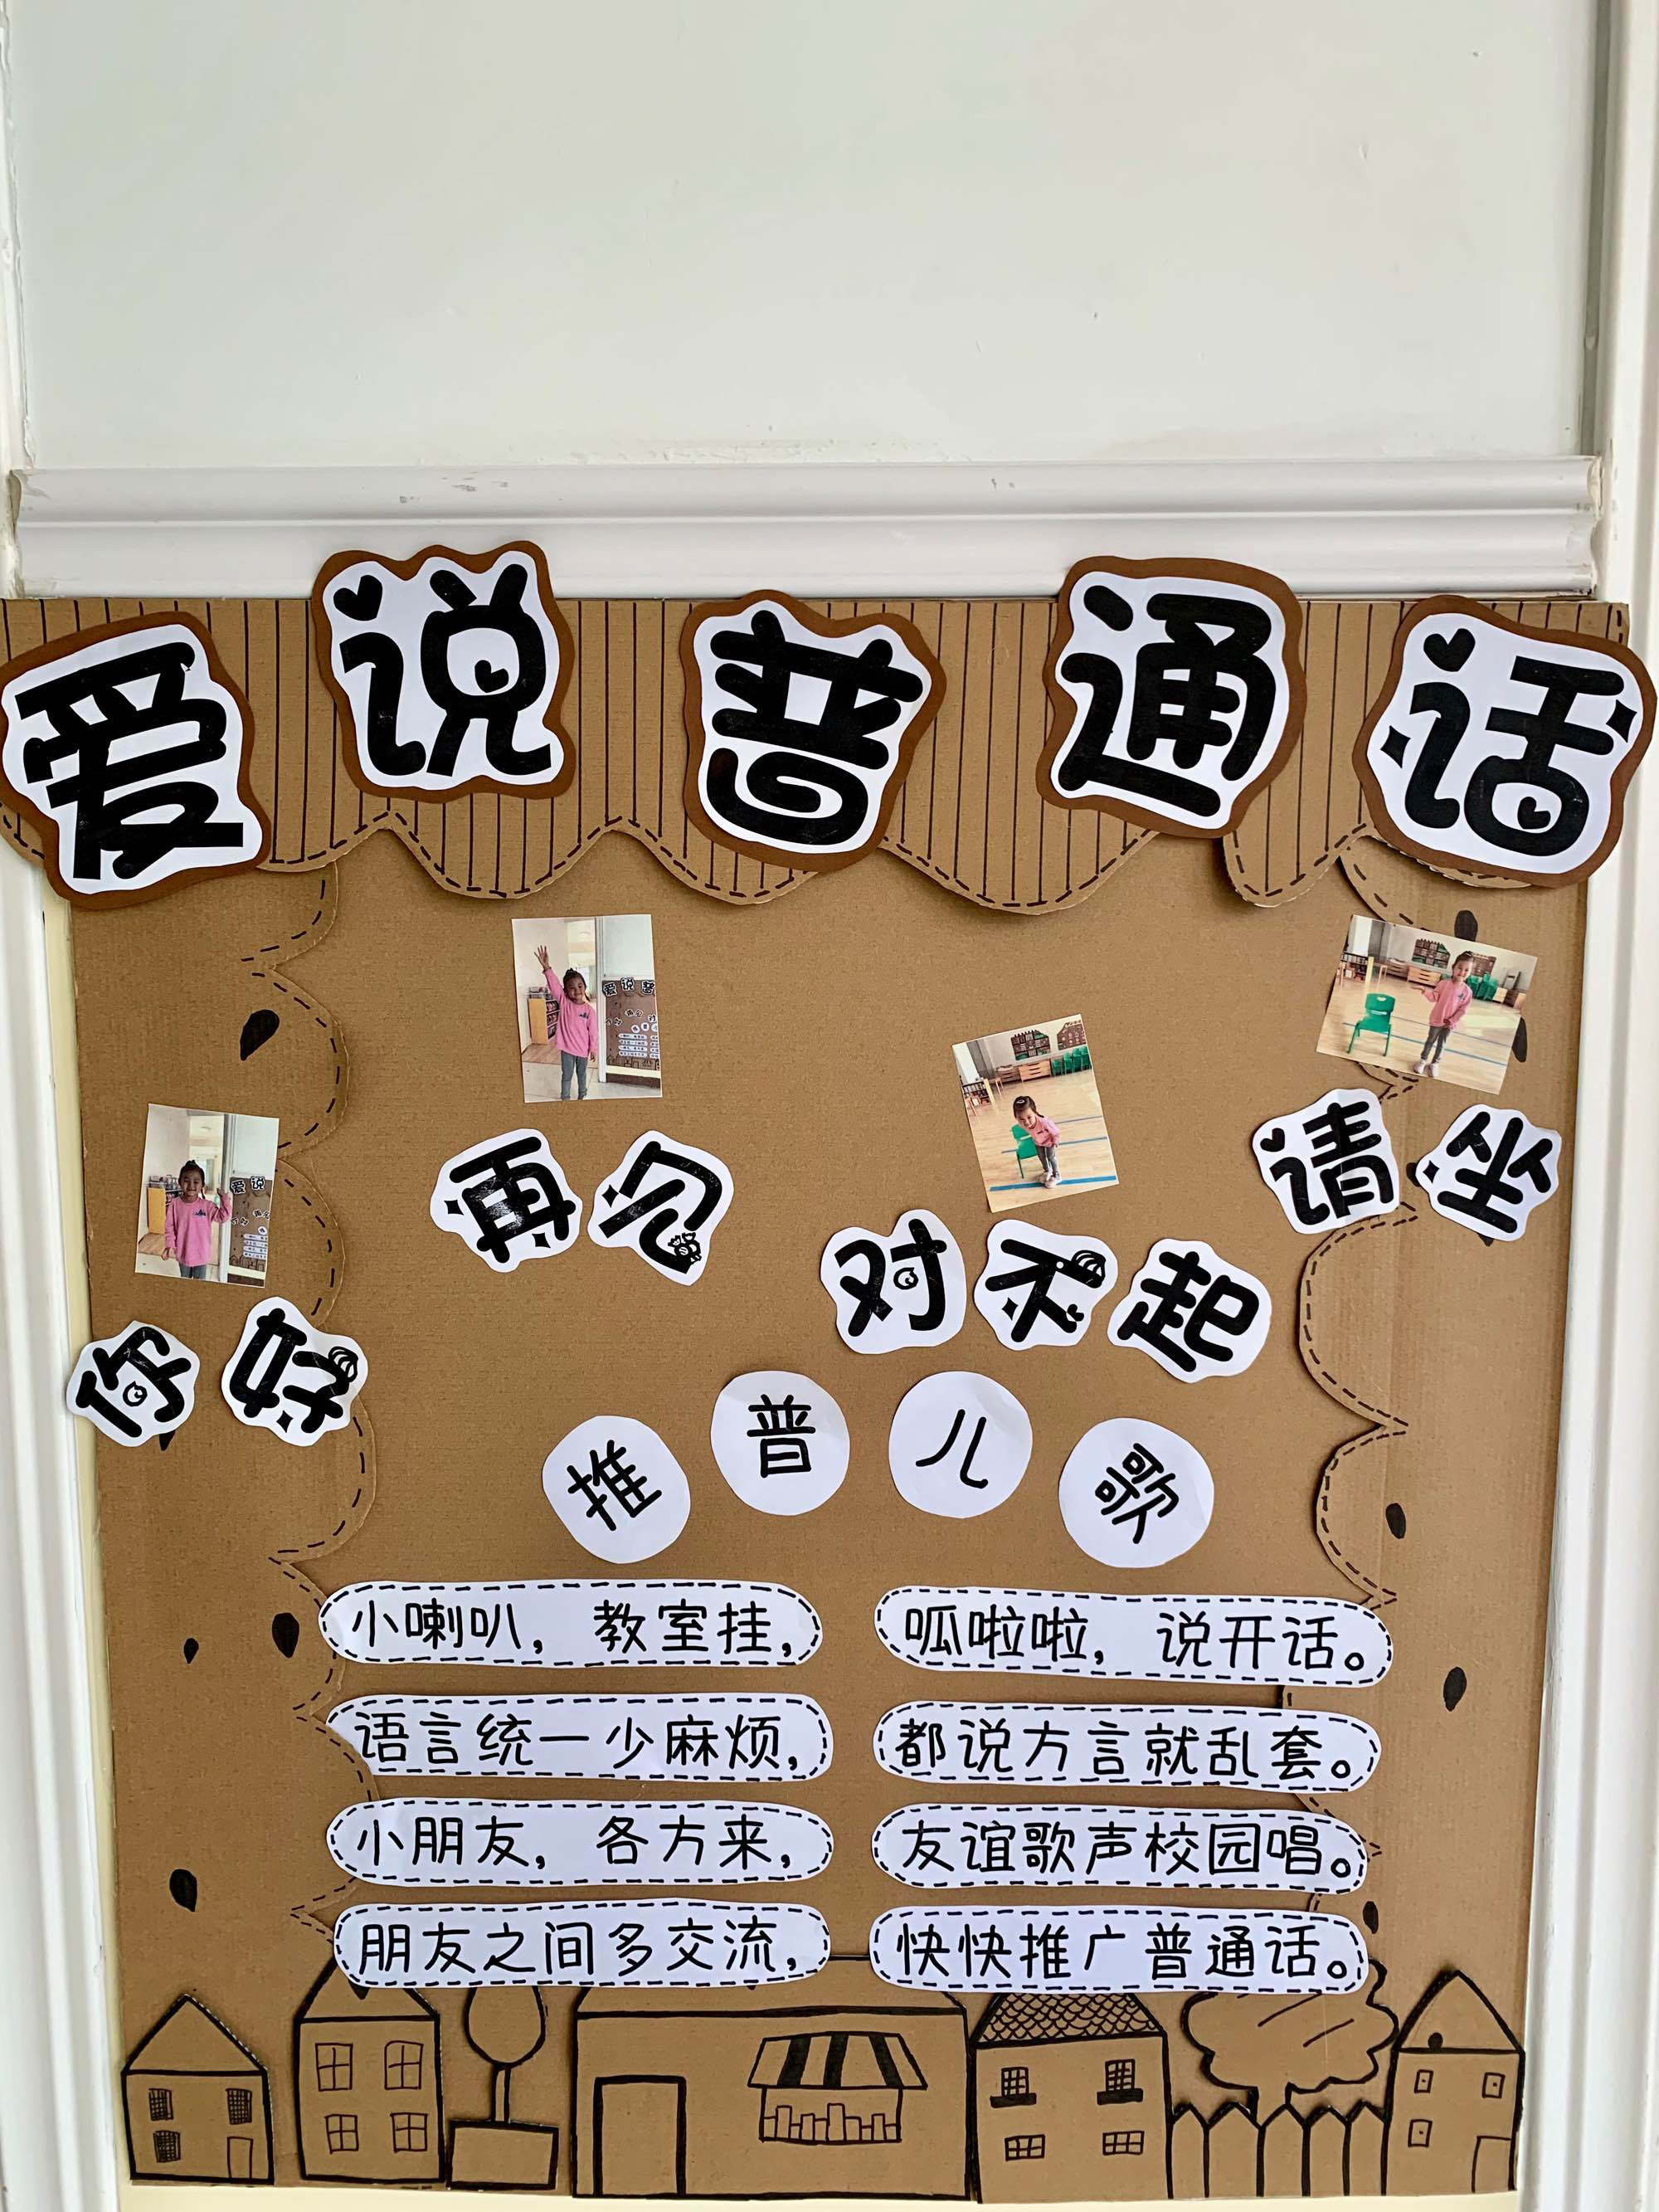 爱说普通话
再见
请坐
对不起
你好
推普儿歌
小喇叭，教室挂，
呱啦啦，说开话。
语言统一少麻烦，
都说方言就乱套。
小朋友，各方来，
友谊歌声校园唱。
朋友之间多交流，
快快推广普通话。